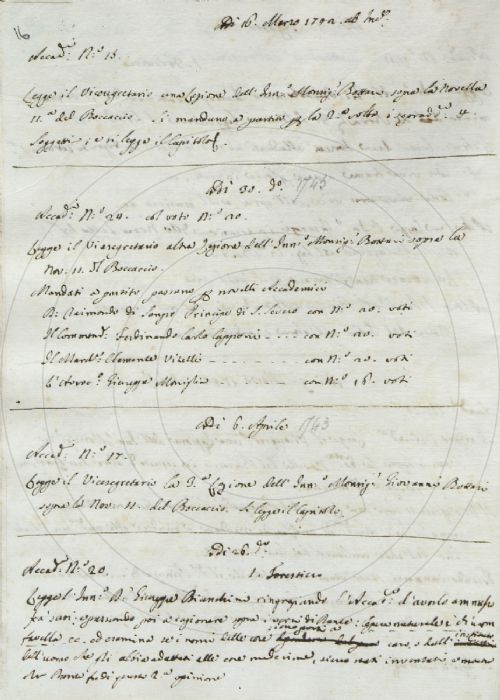 16
Adì 16. Marzo 1742. ab Inc.e
Accad.ci N.o 13.
Legge il Vicesegretario una Lezione dell'Inn.o Monsig.r Bottari sopra la Novella
11.a del Boccaccio. Si mandano a partito p la 2.a volta i sopradd.i 4.
Soggetti; e si legge il Capitolo.
Adì 30. d.o 1743
Accad.ci N.o 24. col voto N.o 20.
Legge il Vicesegretario altra Lezione dell'Inn.o Monsig.r Bottari sopra la
Nov. 11. del Boccaccio.
Mandati a partito passano p novelli Accademici
D. Raimondo di Sangro Principe di S. Severo con N.o 20. voti
Il Commend.r Ferdinando Carlo Capponi con N.o 20. voti
Il March.e Clemente Vitelli con N.o 20. voti
L'Avvoc.o Giuseppe Maniglia con N.o 18. voti
Adì 6. Aprile 1743
Accad.ci N.o 17.
Legge il Vicesegretario la 3.a Lezione dell'Inn.o Monsig.r Giovanni Bottari
sopra la Nov. 11. del Boccaccio. Si legge il Capitolo.
Adì 26. d.o
Accad.ci N.o 20. 1. Forestiero
Legge l'Inn.o D. Giuseppe Bianchini ringraziando l'Accad.a d'averlo ammesso
fra suoi, e passando poi a ragionare sopra i versi di Dante: Opera naturale è ch'uom
favella ec. ed esamina se i nomi delle cose
dell'uomo che gli abbia adattati alle cose medesime, sieno stati inventati a mente
2.a opinione